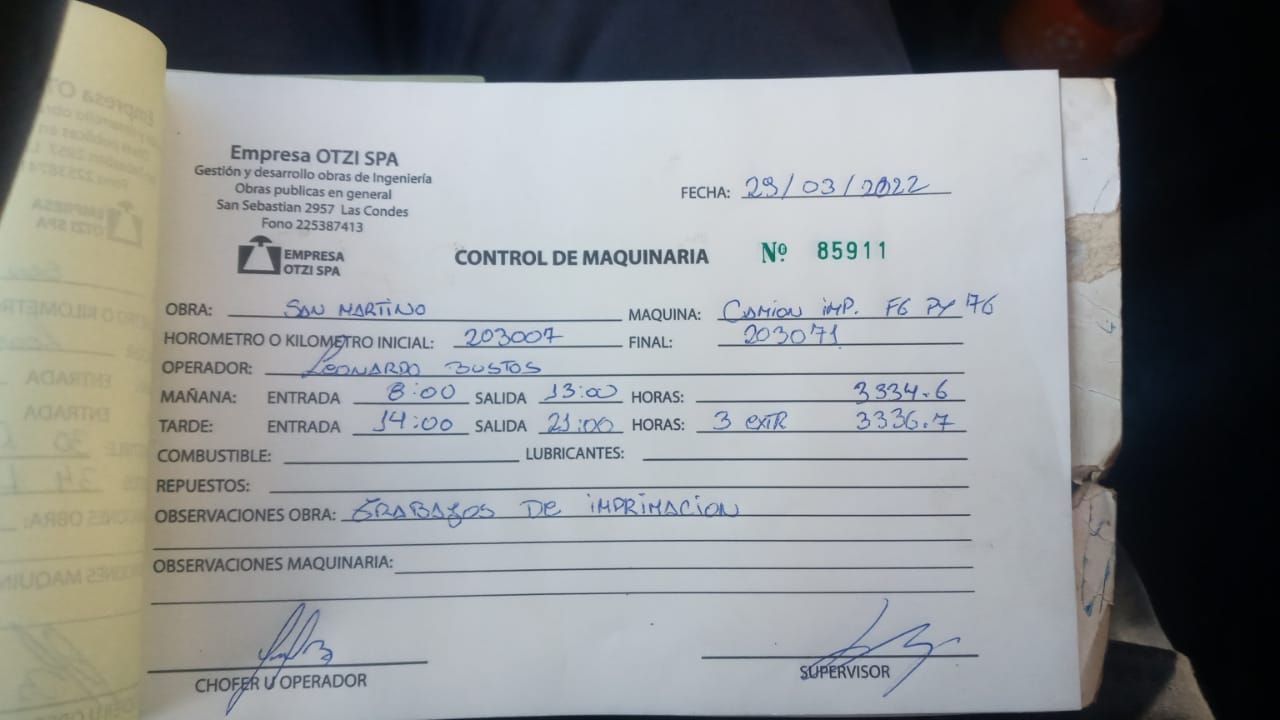 Empresa OTZI SPA
Gestión y desarrollo obras de Ingeniería
Obras publicas en general
San Sebastian 2957 Las Condes
Fono 225387413
EMPRESA
OTZI SPA
FECHA: 29/03/2022
CONTROL DE MAQUINARIA Nº 85911
OBRA: SAN MARTINO MAQUINA: CAMION IMP. FG PY 76
HOROMETRO O KILOMETRO INICIAL: 203007 FINAL: 203071
OPERADOR: LEONARDO BUSTOS
MAÑANA: ENTRADA 8:00 SALIDA 13:00 HORAS: 3334.6
TARDE: ENTRADA 14:00 SALIDA 21:00 HORAS: 3 EXTR 3336.7
COMBUSTIBLE: LUBRICANTES:
REPUESTOS:
OBSERVACIONES OBRA: TRABAJOS DE IMPRIMACION
OBSERVACIONES MAQUINARIA:
CHOFER U OPERADOR SUPERVISOR